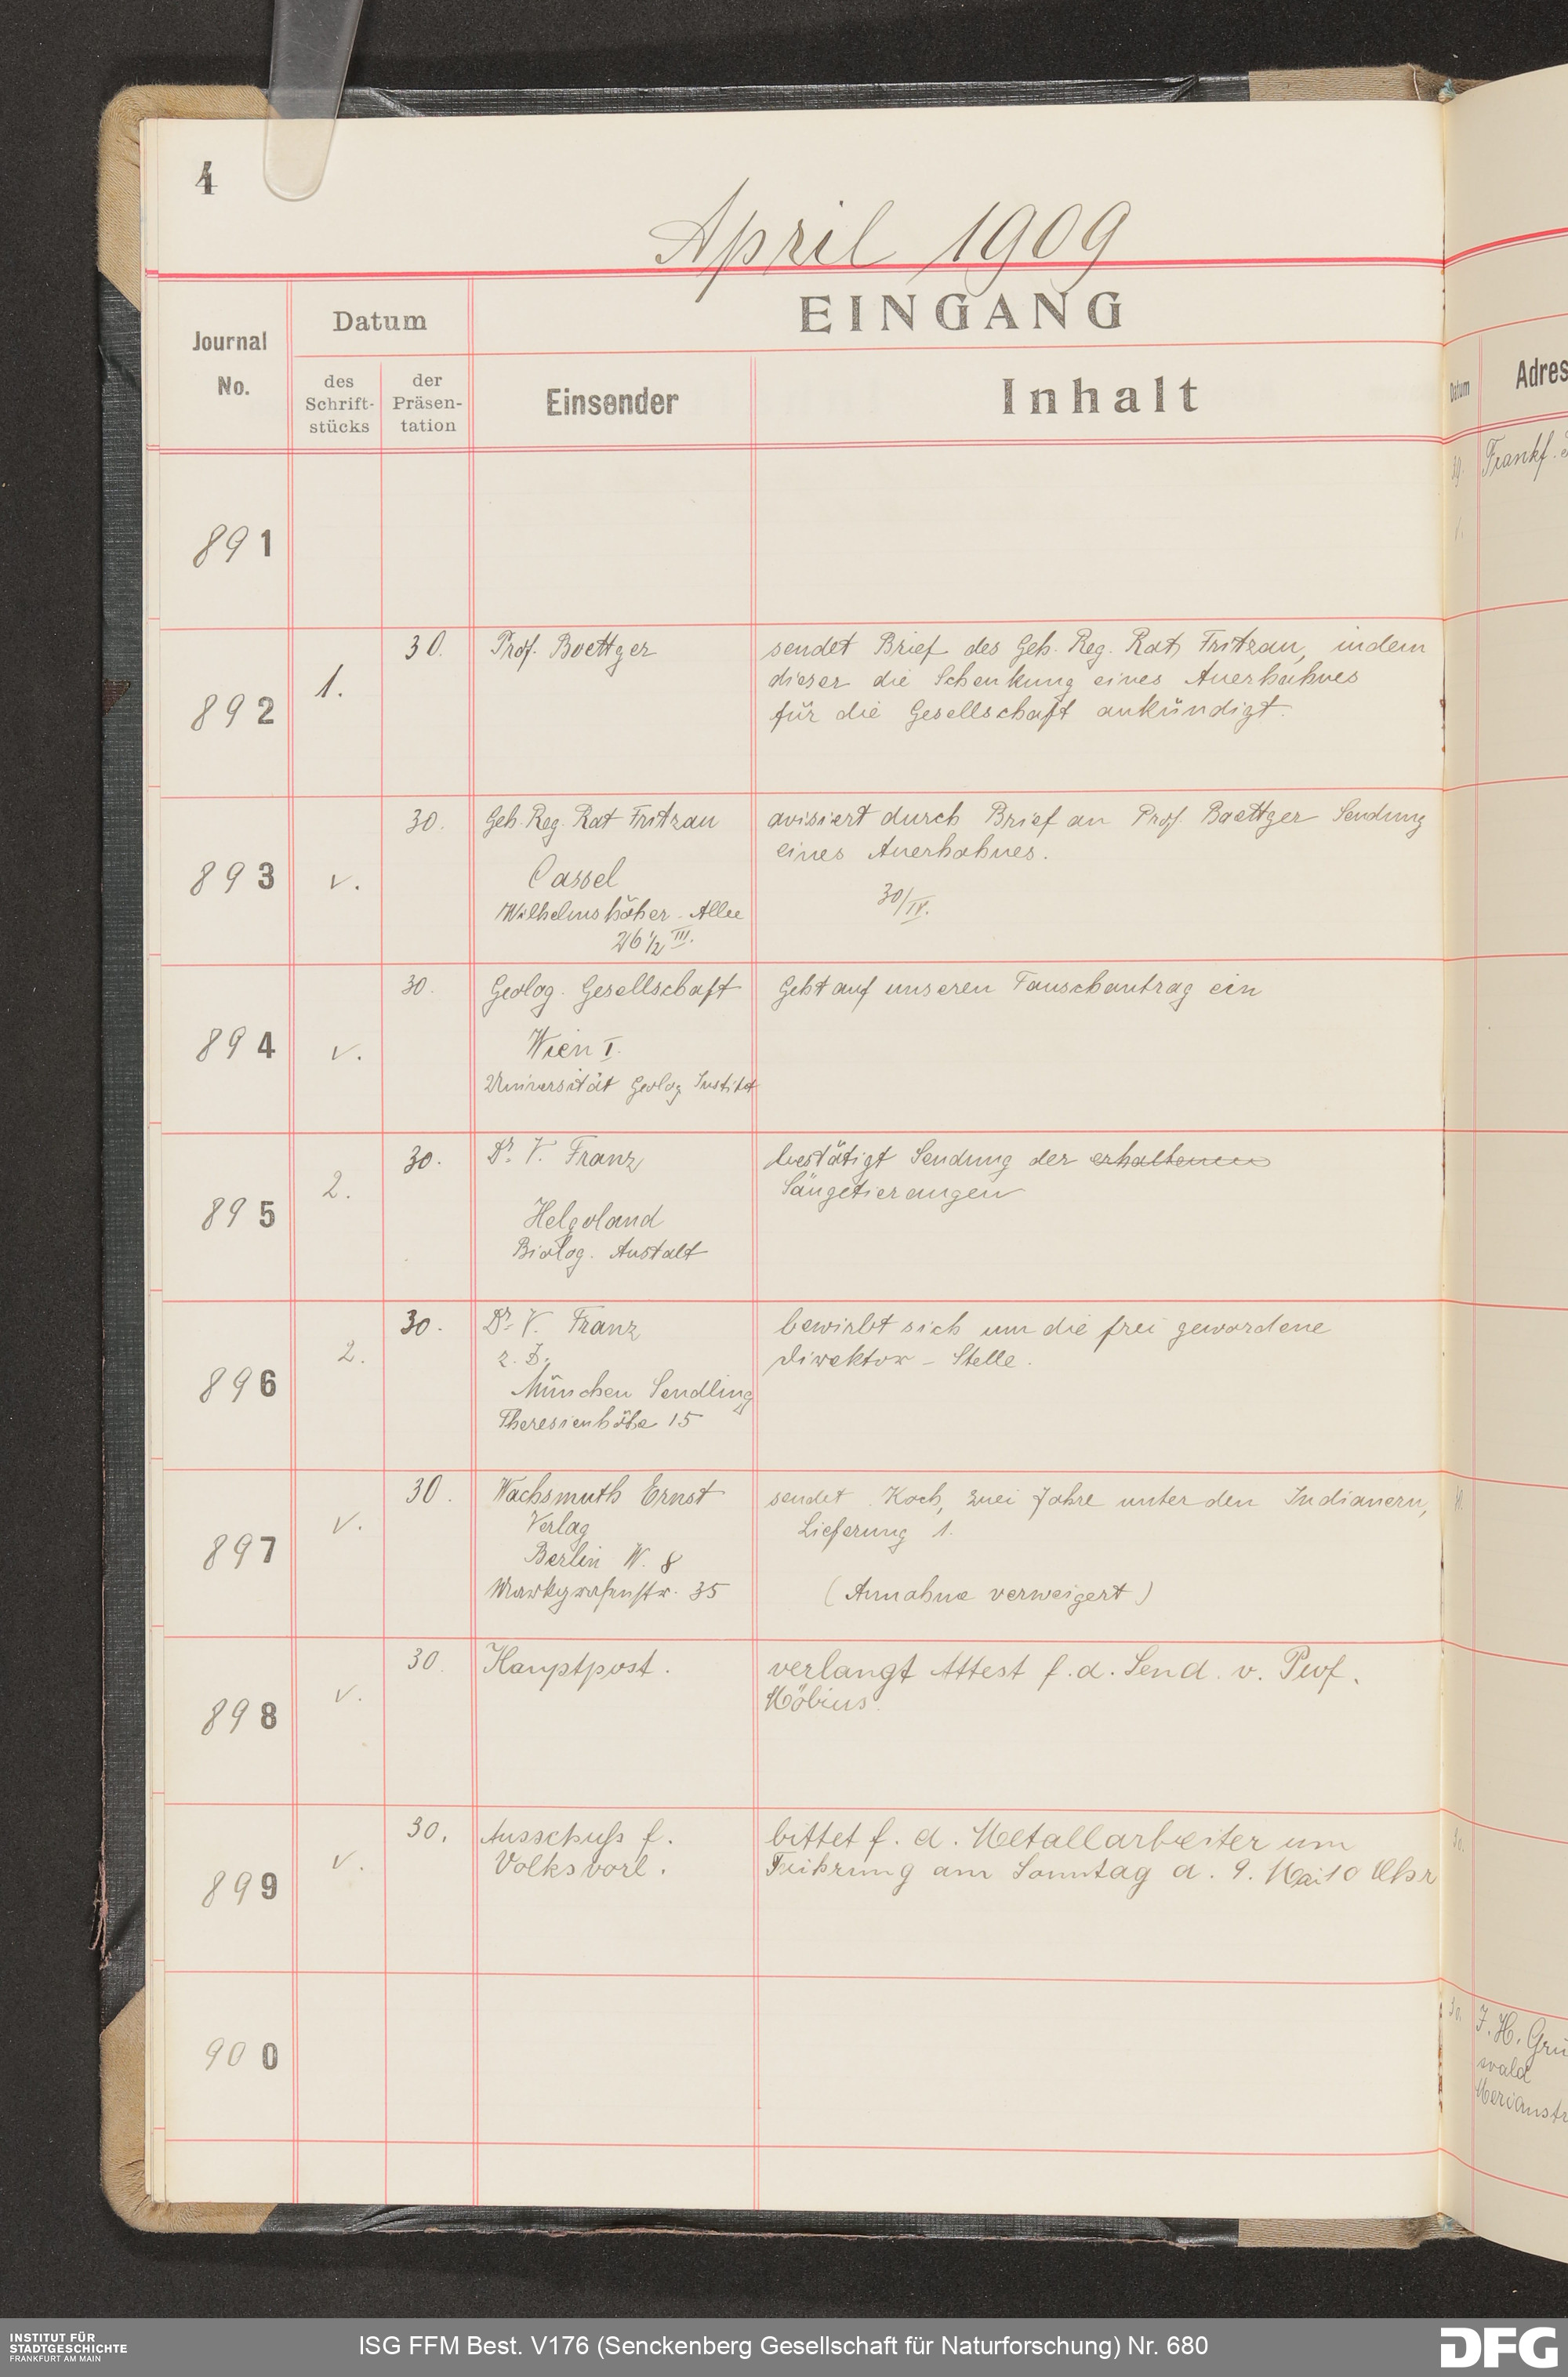 4
April 1909
EINGANG
Journal
No.
Datum
des
Schrift-
stücks
der
Präsen-
tation
Einsender
Inhalt
Datum
Adres
891
30.
Frankf.
892
1.
30.
Prof. Boettger
sendet Brief des Geh. Reg. Rat Fritzau, indem
dieser die Schenkung eines Auerhahnes
für die Gesellschaft ankündigt.
893
v.
30.
Geh. Reg. Rat Fritzau
Cassel
Wilhelmshöher-Allee
26 1/2 III.
avisiert durch Brief an Prof. Boettger Sendung
eines Auerhahnes.
30/IV.
894
v.
30.
Geolog. Gesellschaft
Wien I.
Universität Geolog Institut
Geht auf unseren Tauschantrag ein
895
2.
30.
Dr. V. Franz
Helgoland
Biolog. Anstalt
bestätigt Sendung der erhaltenen
Säugetieraugen
896
2.
30.
Dr. V. Franz
z. Z.
München Sendling
Theresienhöhe 15
bewirbt sich um die frei gewordene
Direktor-Stelle.
897
v.
30.
Wachsmuth Ernst
Verlag
Berlin W. 8
Markgrafenstr. 35
sendet Koch, zwei Jahre unter den Indianern,
Lieferung 1.
(Annahme verweigert)
898
v.
30.
Hauptpost.
verlangt Attest f. d. Send. v. Prof.
Möbius.
899
v.
30.
Ausschuß f.
Volksvorl.
bittet f. d. Metallarbeiter um
Führung am Sonntag d. 9. Mai 10 Uhr
30.
900
30.
J. H. Grü
wald
Merianstr
INSTITUT FÜR
STADTGESCHICHTE
FRANKFURT AM MAIN
ISG FFM Best. V176 (Senckenberg Gesellschaft für Naturforschung) Nr. 680
DFG